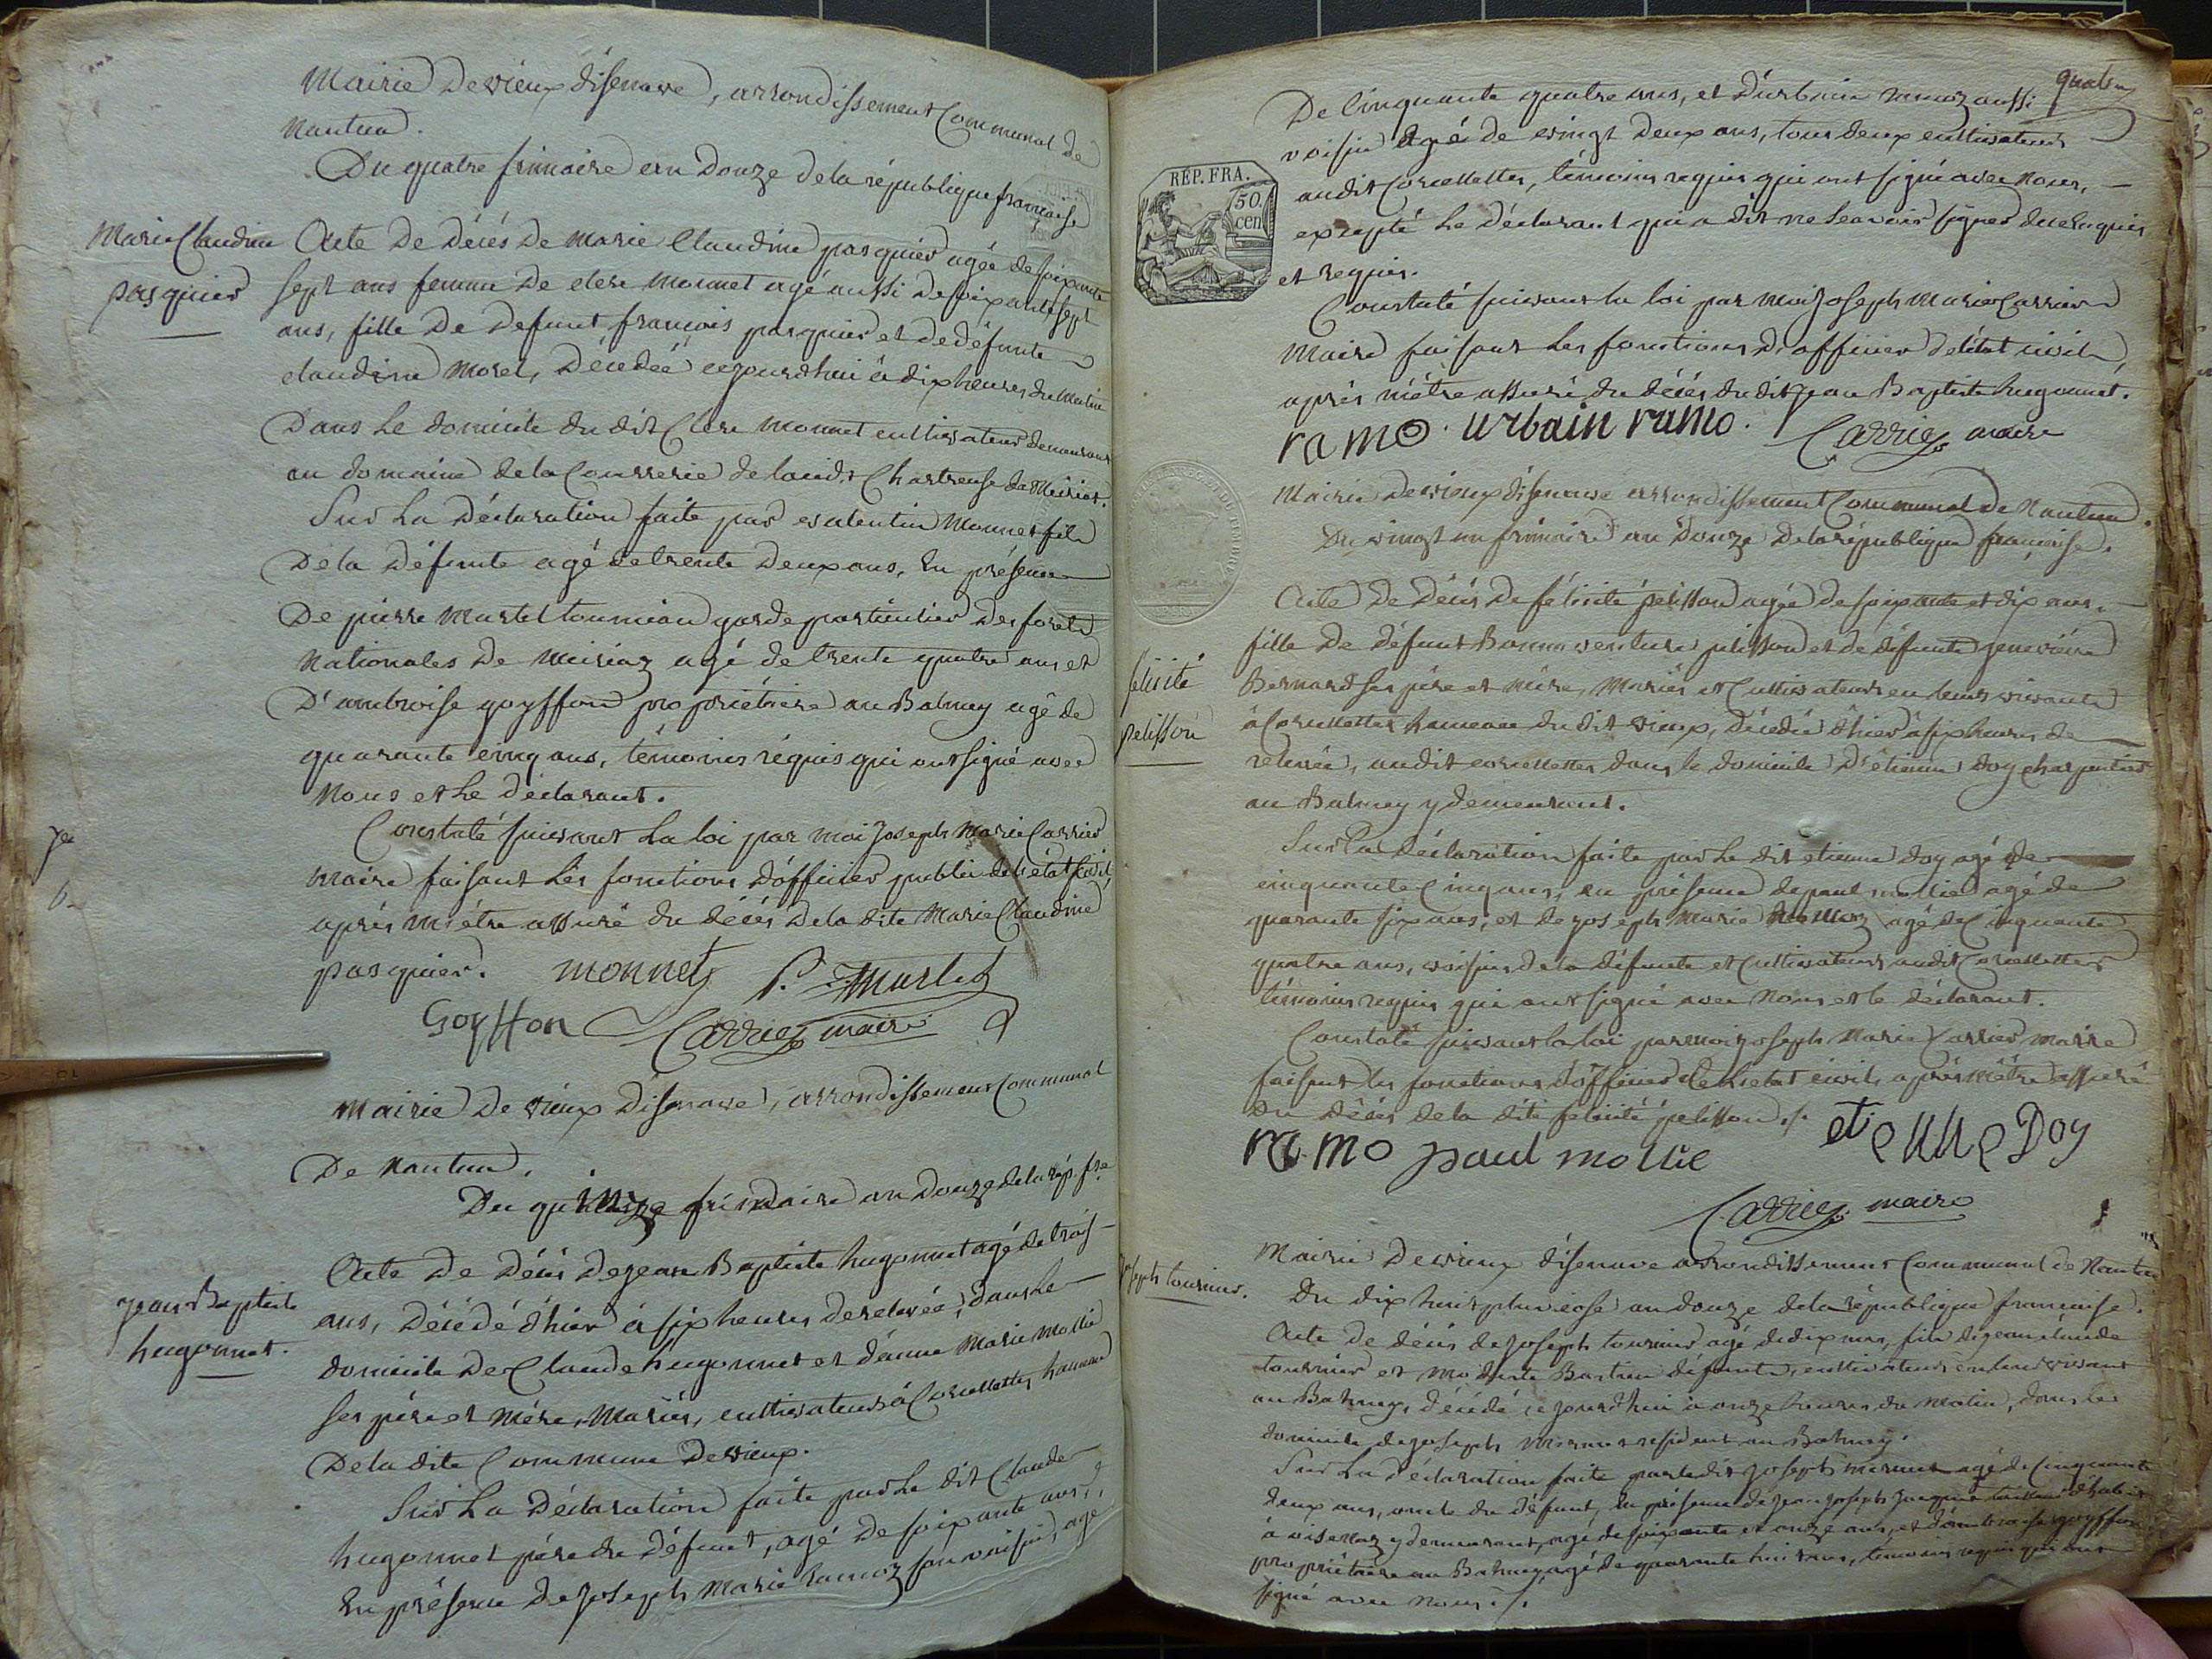 Mairie de vieux d'isenave, arrondissement Communal de
Nantua.
Du quatre frimaire an Douze de la république française
Marie Claudine
pasquier
Acte De Décés De Marie Claudine pasquier agée de soixante
sept ans femme De clere Monnet agé aussi de soixante sept
ans, fille De defunt françois pasquier et de défunte
claudine Morel, Décedée cejourdhui à dix heures du Matin
Dans Le domicile du dit Clere monnet cultivateur demeurant
au domaine de la Courrerie de laudit Chartreuse de Meiriat.
Sur La Déclaration faite par valentin Monnet fils
De la Défunte agé de trente Deux ans, En présence
De pierre Martel garde particulier des forets
Nationales De Meiriaz agé de trente quatre ans et
D'ambroise goyffon propriétaire au Balmey agé de
quarante cinq ans, témoins réquis qui ont signé avec
Nous et Le déclarant.
Constaté suivant La loi par moi Joseph Marie Carrier
Maire faisant Les fonctions d'officier public de l'état civil,
après m'être assuré du décés De la dite Marie Claudine
pasquier. monnet P. Martel
Goyffon Carrier maire
Mairie De vieux Disenave, arrondissement Communal
De Nantua.
Du quinze frimaire an Douze de la rép. fse
Jean Baptiste
hugonnet.
Acte De Décés De jean Baptiste hugonnet agé de trois
ans, Décédé d'hier à six heures de relevée, dans Le
domicile De Claude hugonnet et d'anne Marie Mollie
ses père et Mère, Mariés, cultivateurs à Corcellettes hameau
De la dite Commune De vieux.
Sur La Déclaration faite par Le dit Claude
hugonnet père du Défunt, agé De soixante ans,
En présence De Joseph Marie ramoz son voisin, agé
quatre
De Cinquante quatre ans, et D'urbain ramoz aussi
voisin agé de vingt deux ans, tous deux cultivateurs
audit Corcellettes, témoins requis qui ont signé avec Nous,
excepté Le Déclarant qui a dit ne Scavoir signer de ce enquis
et requis.
RÉP. FRA.
50
cen
Constaté suivant la loi par moi Joseph Marie Carrier
Maire faisant Les fonctions d'officier de l'état civil
après m'être assuré du décés du dit Jean Baptiste hugonnet.
ramo. urbain ramo. Carrier maire
Mairie De vieux d'isenave arrondissement Communal de Nantua.
Du vingt un frimaire an Douze De la république française.
félicité
pelisson
Acte De Décés De félicité pelisson agée de soixante et dix ans,
fille De défunt Bonnaventure pelisson et de défunte genevieve
Bernard ses père et mère, Mariés et Cultivateurs en leurs vivants
à Corcellettes hameau du dit vieux, Décédée d'hier à six heures de
relevée, audit corcellettes dans le domicile D'étienne Doy charpentier
au Balmey y demeurant.
Sur La Déclaration faite par Le dit etienne Doy agé de
cinquante Cinq ans, en présence de paul mollie agé de
quarante six ans, et de Joseph Marie ramoz agé de Cinquante
quatre ans, voisins de la défunte et Cultivateurs audit Corcellettes
témoins requis qui ont signé avec Nous et le déclarant.
Constaté suivant la loi par moi Joseph Marie Carrier Maire
faisant les fonctions d'officier de l'état civil, après m'être assuré
du décés de la dite félicité pelisson ./.
ramo paul mollie etienne Doy
Carrier maire
Joseph tournier.
Mairie De vieux d'isenave arrondissement Communal de Nantua
Du dix huit pluviose an douze de la république française.
Acte De décés de Joseph tournier agé de dix ans, fils de jean claude
tournier et Modeste défunts, cultivateurs en leurs vivant
au Balmey, décédé ce jourd'hui à onze heures du matin, dans Le
domicile de Joseph résident au Balmey.
Sur La Déclaration faite par le dit Joseph agé de Cinquante
deux ans, oncle du défunt, En présence de Jean Joseph d'habit
à y demeurant, agé de soixante et onze ans, et d'ambroise goyffon
propriétaire au Balmey, agé de quarante huit ans, témoins requis qui ont
signé avec nous ./.